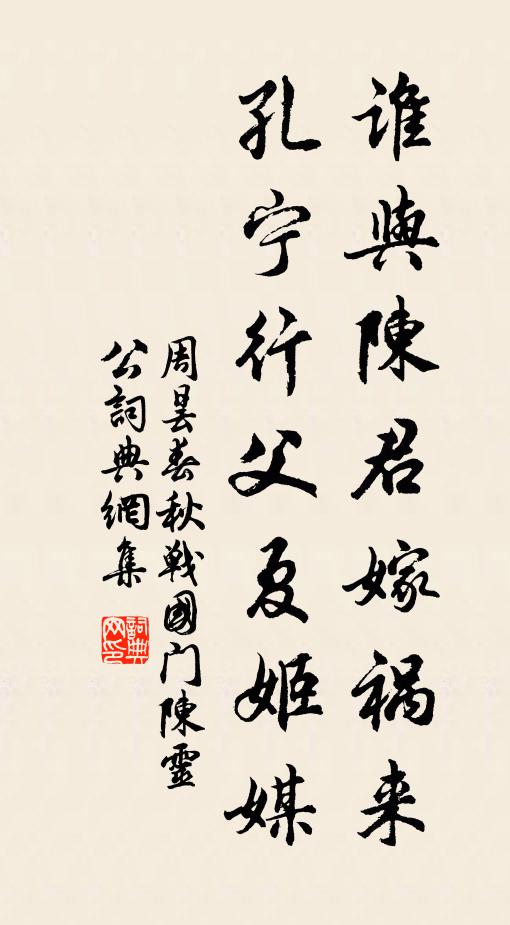 誰與陳君嫁禍来
孔宁行父夏姬媒
周昙春秋戦國门陳靈
公詞典網集
詞典网印